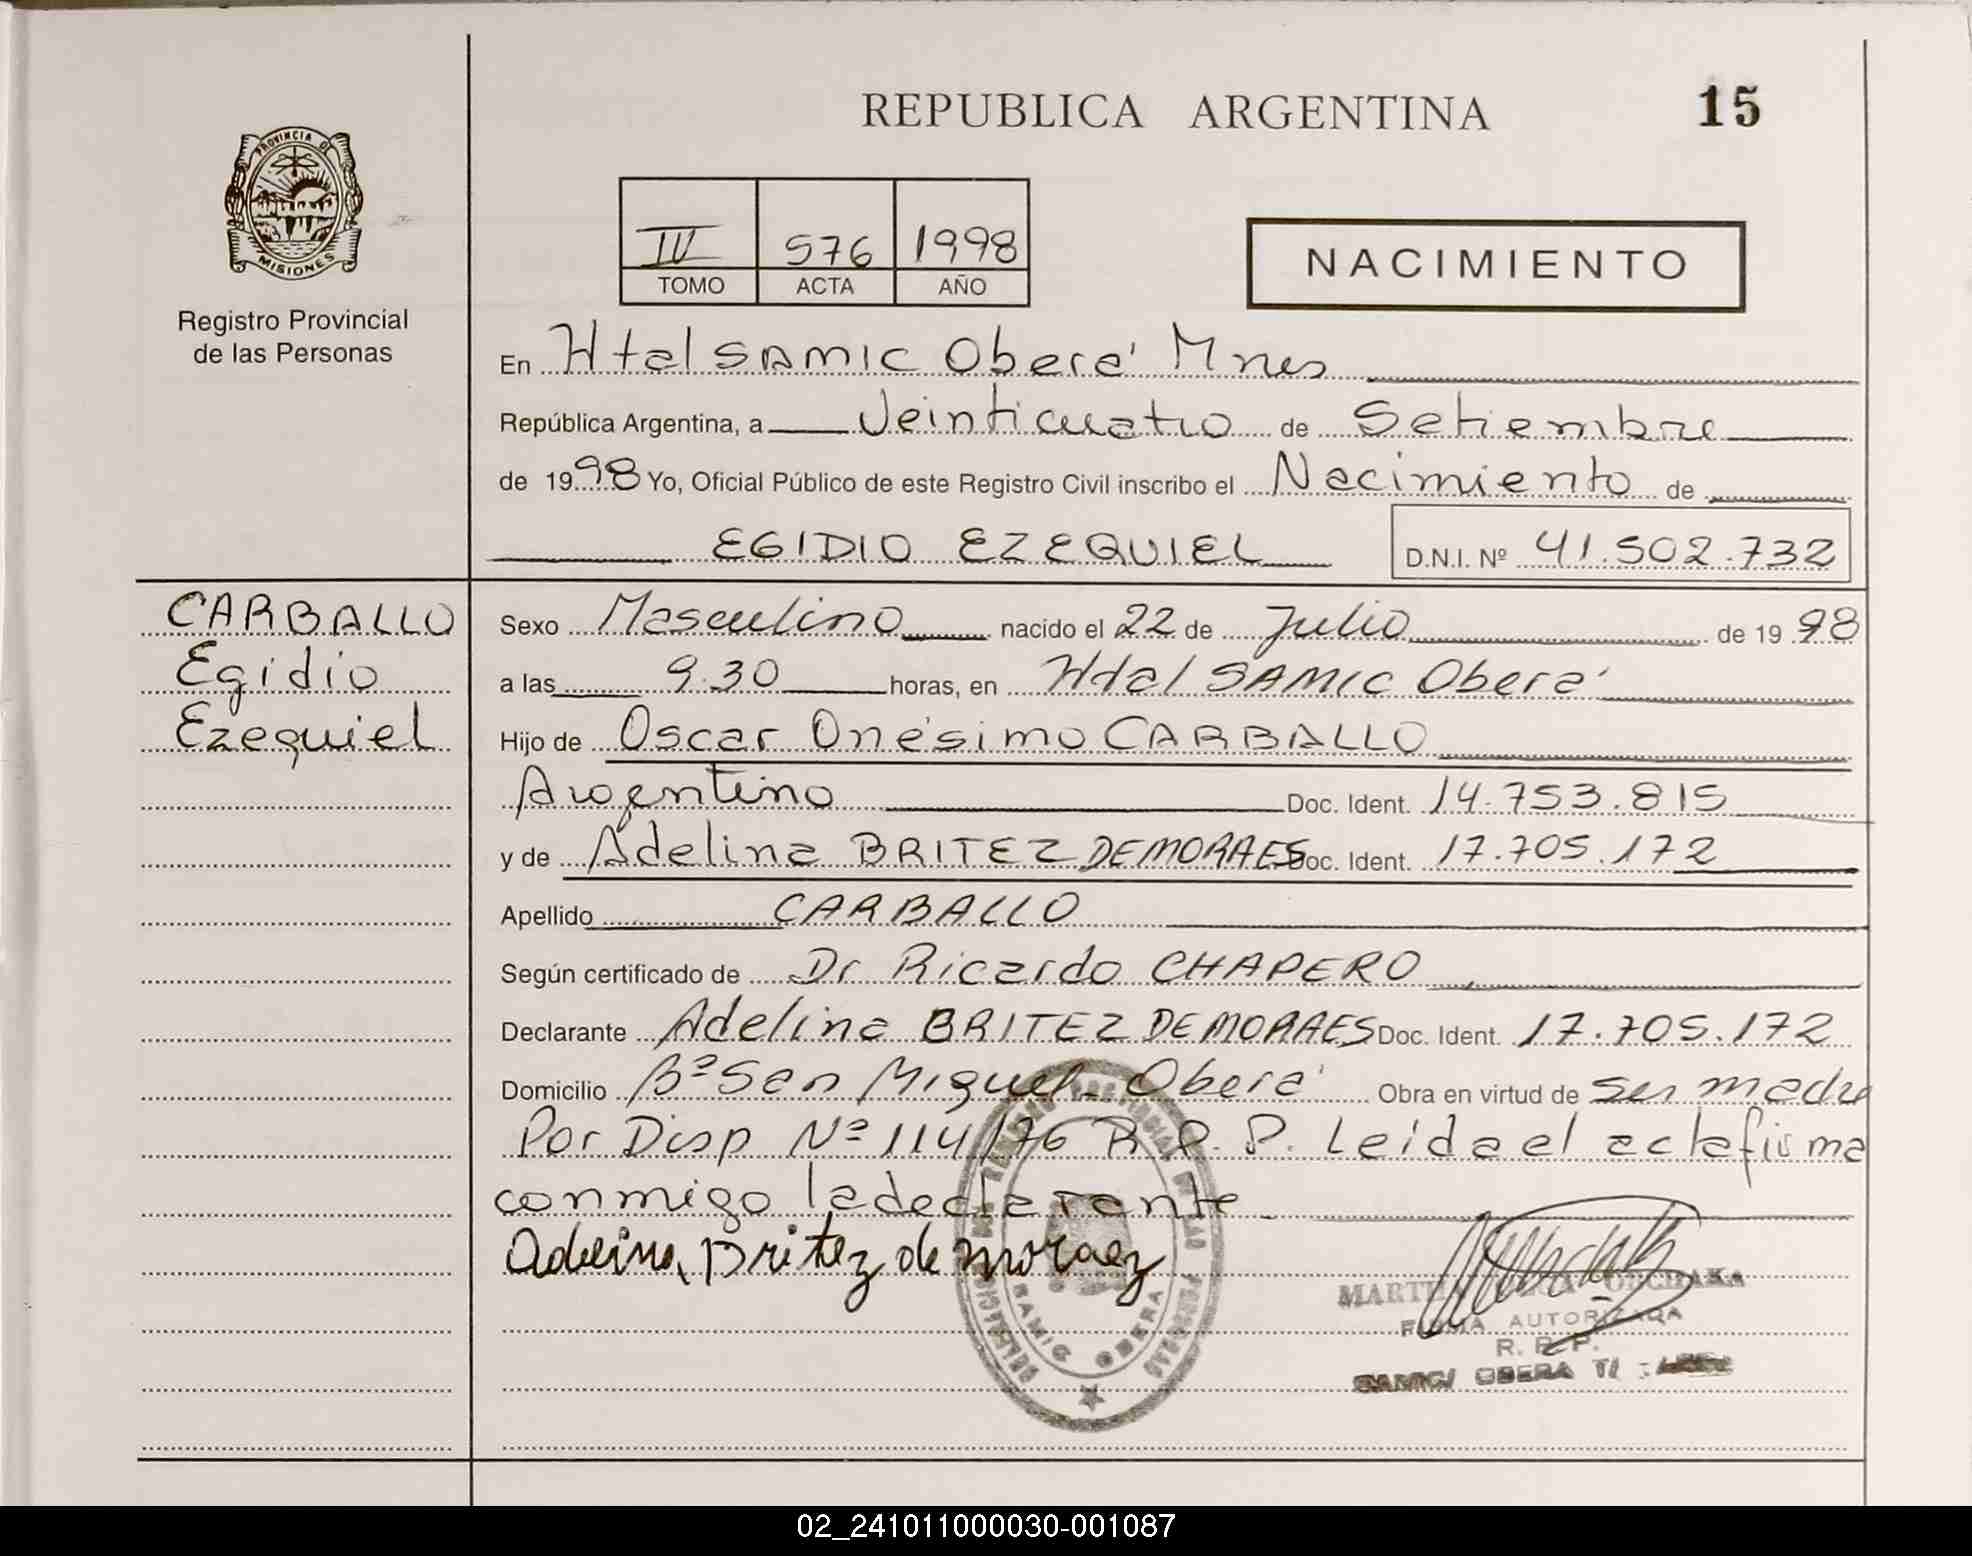 REPUBLICA ARGENTINA
15
PROVINCIA DE
MISIONES
Registro Provincial
de las Personas
IV 576 1998
TOMO ACTA AÑO
NACIMIENTO
En Htal SAMIC Oberá Mnes
República Argentina, a Veinticuatro de Setiembre
de 1998 Yo, Oficial Público de este Registro Civil inscribo el Nacimiento de
EGIDIO EZEQUIEL D.N.I. Nº 41.502.732
CARBALLO
Egidio
Ezequiel
Sexo Masculino nacido el 22 de Julio de 1998
a las 9.30 horas, en Htal SAMIC Oberá
Hijo de Oscar Onésimo CARBALLO
Argentino Doc. Ident. 14.753.815
y de Adelina BRITEZ DE MORAES Doc. Ident. 17.705.172
Apellido CARBALLO
Según certificado de Dr Ricardo CHAPERO
Declarante Adelina BRITEZ DE MORAES Doc. Ident. 17.705.172
Domicilio Bº San Miguel Oberá Obra en virtud de ser madre
Por Disp Nº 114/76 R.P.P. Leída el acta firma
conmigo la declarante
Adelina Britez de moraez
SAMIC OBERA
FIRMA AUTORIZADA
R. P. P.
SAMIC/ OBERA
02_241011000030-001087